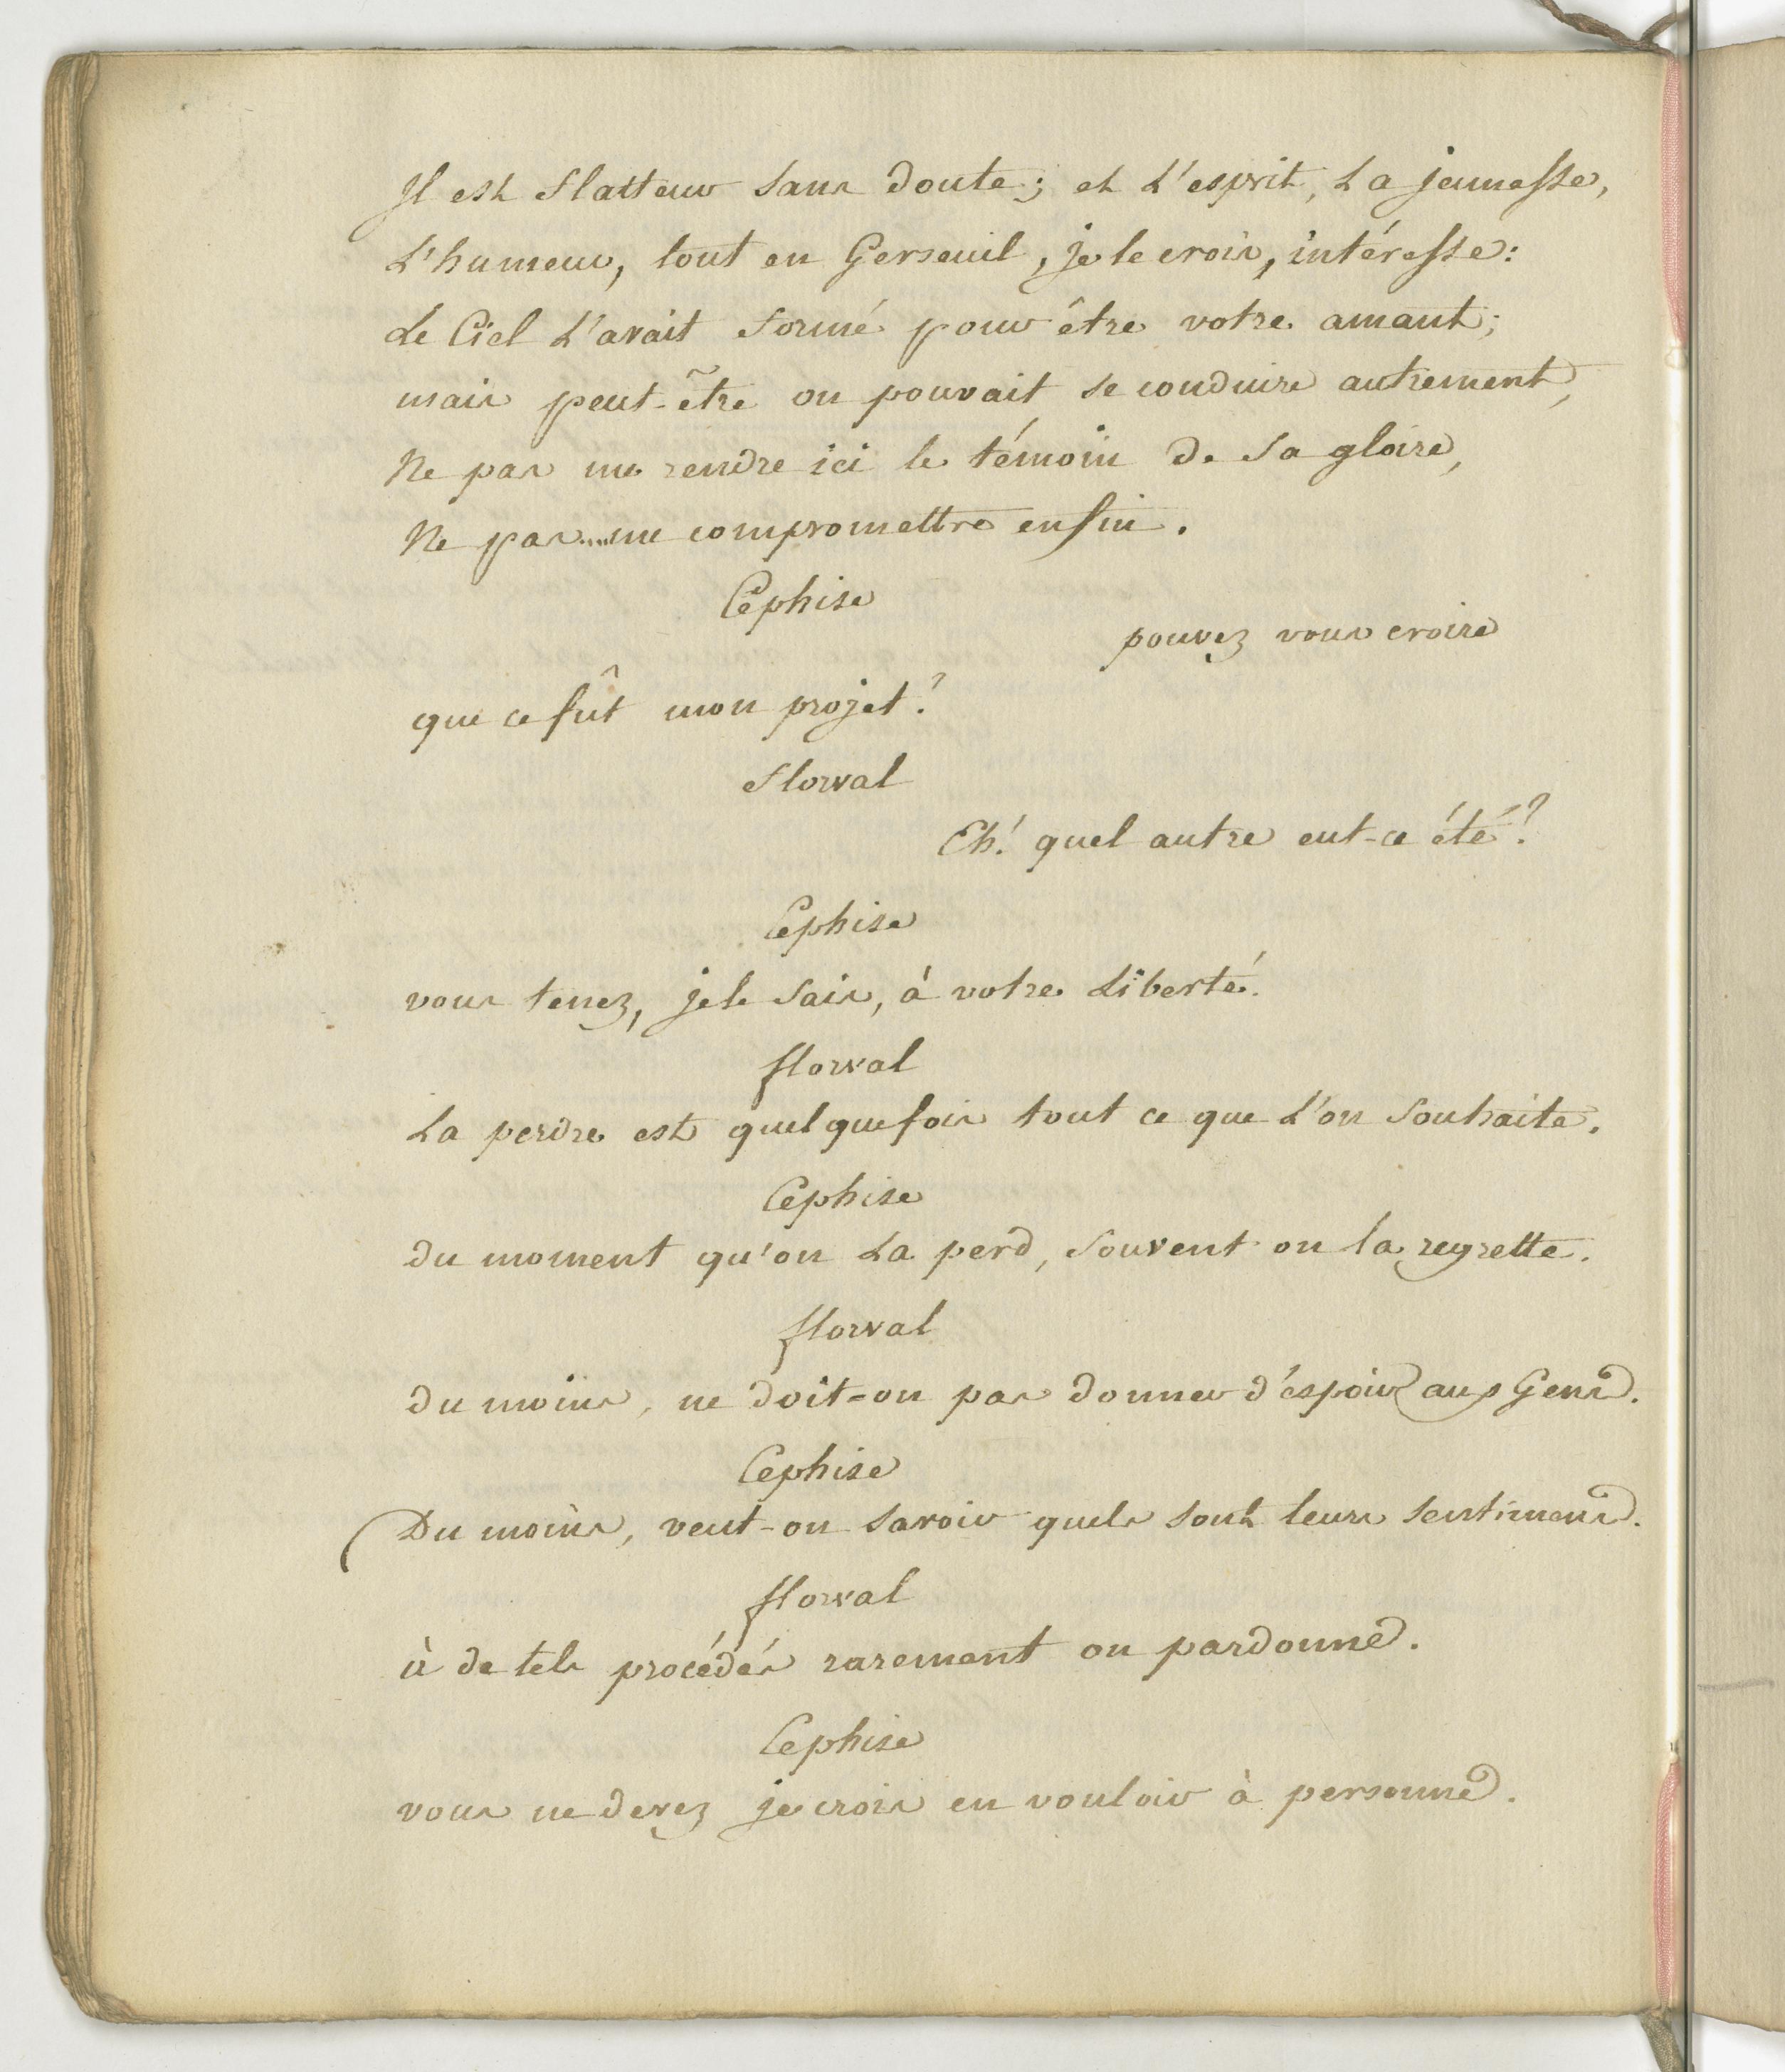 Il est flatteur sans doute; et l'esprit, la jeunesse,
L'humeur, tout en Gerseuil, je le crois, intéresse:
Le Ciel l'avait formé pour être votre amant;
mais peut-être on pouvait se conduire autrement,
Ne pas me rendre ici le témoin de sa gloire,
Ne pas.... me compromettre enfin.
Céphise
pouvez vous croire
que ce fût mon projet?
Florval
Eh! quel autre eut-ce été?
Cephise
vous tenez, je le sais, à votre liberté.
florval
La perdre est quelquefois tout ce que l'on souhaite.
Cephise
du moment qu'on la perd, souvent on la regrette.
florval
du moins, ne doit-on pas donner d'espoir aux Gens.
Cephise
Du moins, veut-on savoir quels sont leurs sentimens.
florval
à de tels procédés rarement on pardonne.
Cephise
vous ne devez je crois en vouloir à personne.